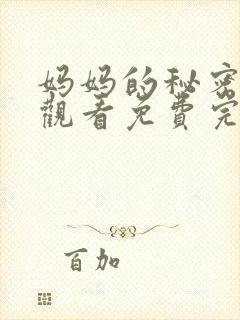 妈妈的秘密
觀看免費完
百加